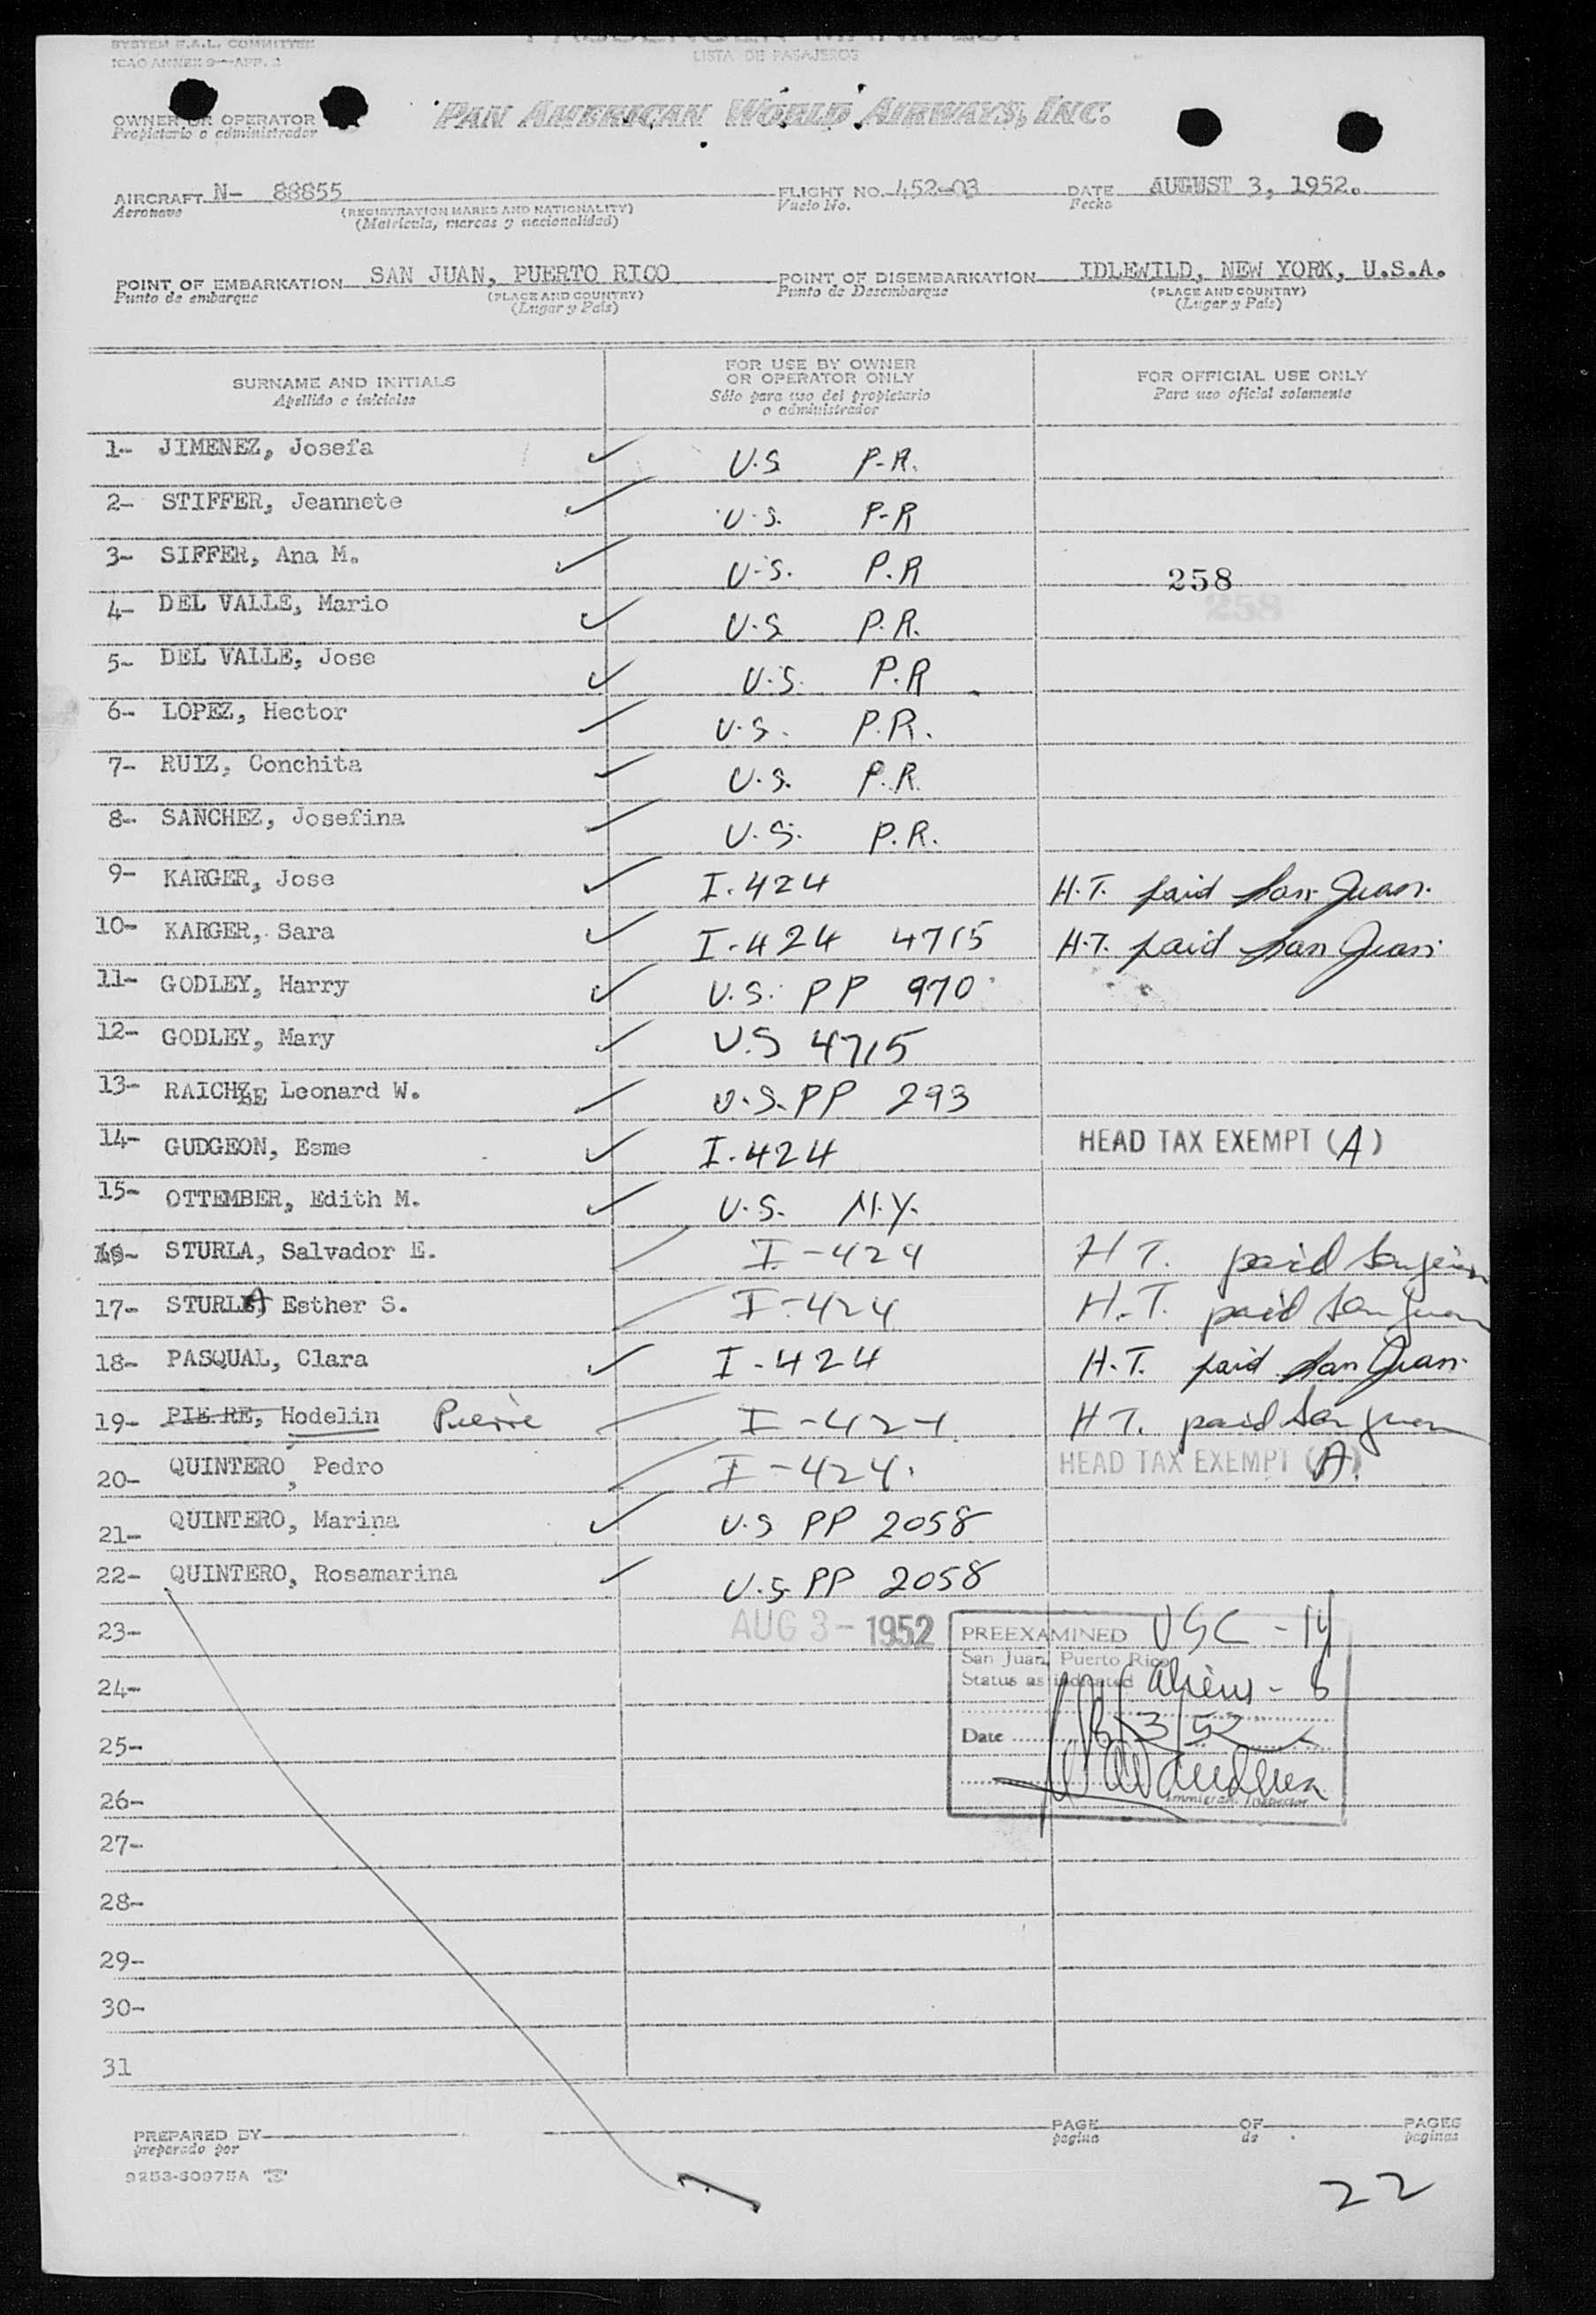 SYSTEM F.A.L. COMMITTEE
ICAO ANNEX 9—APP. 2
PASSENGER MANIFEST
LISTA DE PASAJEROS
OWNER OR OPERATOR
Propietario o administrador
PAN AMERICAN WORLD AIRWAYS, INC.
AIRCRAFT N- 88855 FLIGHT NO. 452-03 DATE AUGUST 3, 1952.
Aeronave (REGISTRATION MARKS AND NATIONALITY) Vuelo No. Fecha
(Matrícula, marcas y nacionalidad)
POINT OF EMBARKATION SAN JUAN, PUERTO RICO POINT OF DISEMBARKATION IDLEWILD, NEW YORK, U.S.A.
Punto de embarque (PLACE AND COUNTRY) Punto de Desembarque (PLACE AND COUNTRY)
(Lugar y País) (Lugar y País)
SURNAME AND INITIALS FOR USE BY OWNER OR OPERATOR ONLY FOR OFFICIAL USE ONLY
Apellido e iniciales Sólo para uso del propietario o administrador Para uso oficial solamente
1- JIMENEZ, Josefa ✓ U.S. P-R.
2- STIFFER, Jeannete ✓ U.S. P-R
3- SIFFER, Ana M. ✓ U.S. P.R
258
258
4- DEL VALLE, Mario ✓ U.S. P.R.
5- DEL VALLE, Jose ✓ U.S. P.R
6- LOPEZ, Hector ✓ U.S. P.R.
7- RUIZ, Conchita ✓ U.S. P.R.
8- SANCHEZ, Josefina ✓ U.S. P.R.
9- KARGER, Jose ✓ I-424 H.T. paid San Juan.
10- KARGER, Sara ✓ I-424 4715 H.T. paid San Juan.
11- GODLEY, Harry ✓ U.S. PP 970
12- GODLEY, Mary ✓ U.S 4715
13- RAICHLE Leonard W. ✓ U.S. PP 293
14- GUDGEON, Esme ✓ I-424 HEAD TAX EXEMPT (A)
15- OTTEMBER, Edith M. ✓ U.S. N.Y.
16- STURLA, Salvador E. I-424 H T. paid San Juan
17- STURLA, Esther S. I-424 H.T. paid San Juan
18- PASQUAL, Clara ✓ I-424 H.T. paid San Juan.
19- PIE.RE, Hodelin Pierre I-424 H T. paid San Juan
20- QUINTERO, Pedro I-424. HEAD TAX EXEMPT (A)
21- QUINTERO, Marina ✓ U.S PP 2058
22- QUINTERO, Rosamarina ✓ U.S. PP 2058
23-
AUG 3 - 1952
PREEXAMINED USC - 14
San Juan, Puerto Rico
Status as indicated Aliens - 8
Date 8/3/52
Immigrant Inspector
24-
25-
26-
27-
28-
29-
30-
31
PREPARED BY PAGE OF PAGES
preparado por pagina de paginas
9253-60975A
22